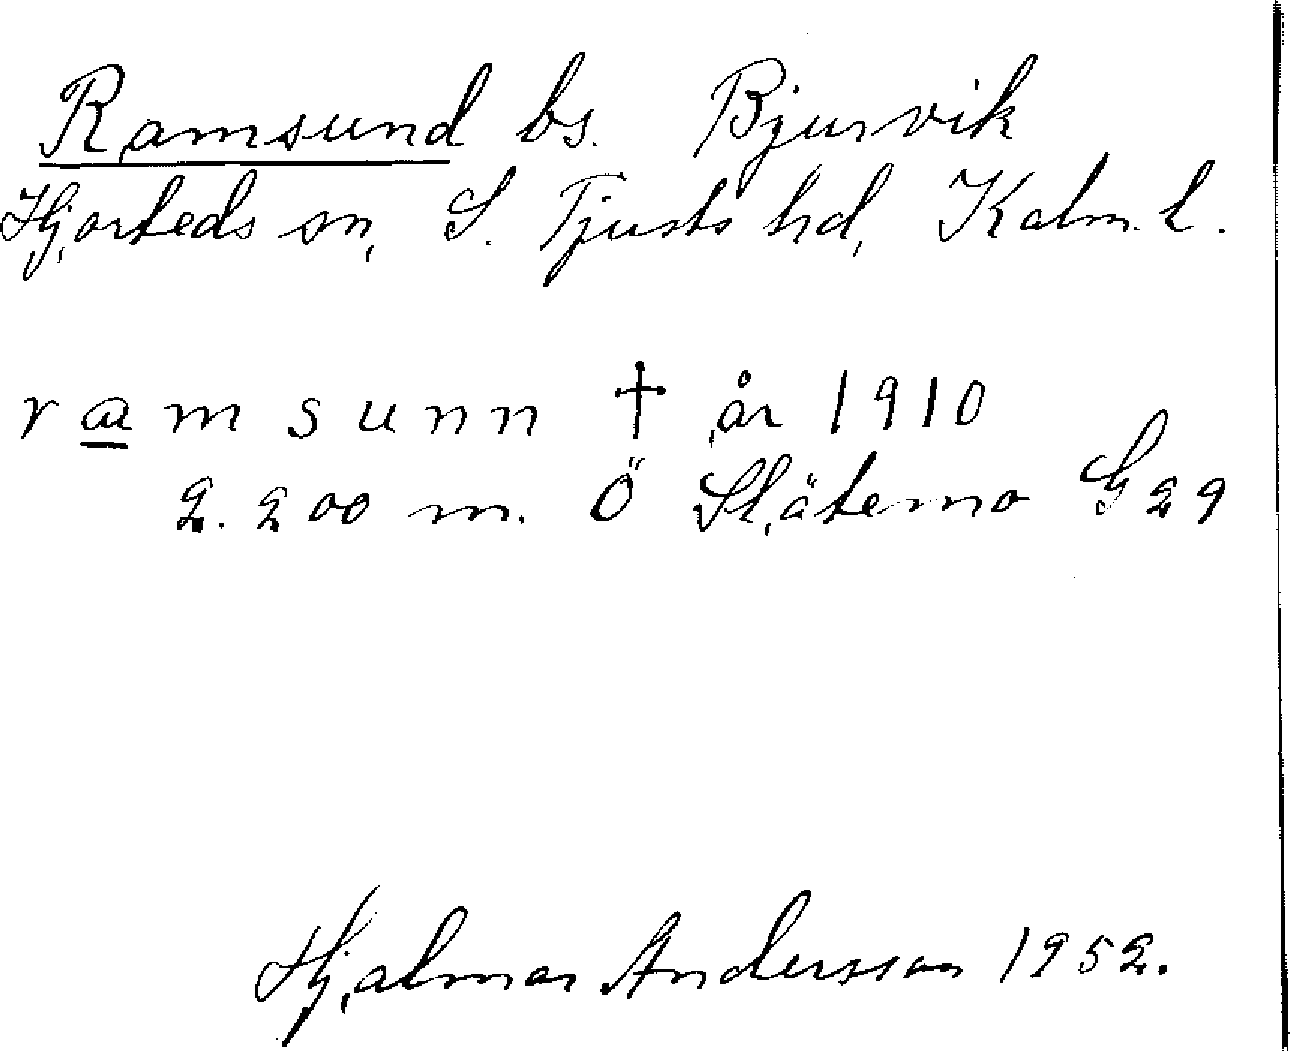 Ramsund bs. Bjurvik
Hjorteds sn, S. Tjusts hd, Kalm. l.
ramsunn † år 1910
2.200 m. Ö Slätemo G29
Hjalmar Andersson 1952.